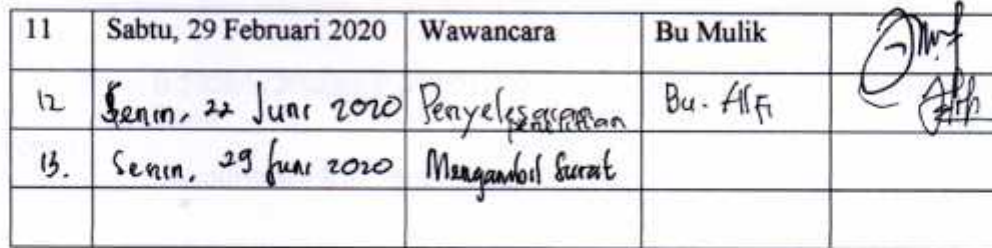 11 Sabtu, 29 Februari 2020 Wawancara Bu Mulik
12 Senin, 22 Juni 2020 Penyelesaian penelitian Bu. Alfi
13. Senin, 29 Juni 2020 Mengambil Surat